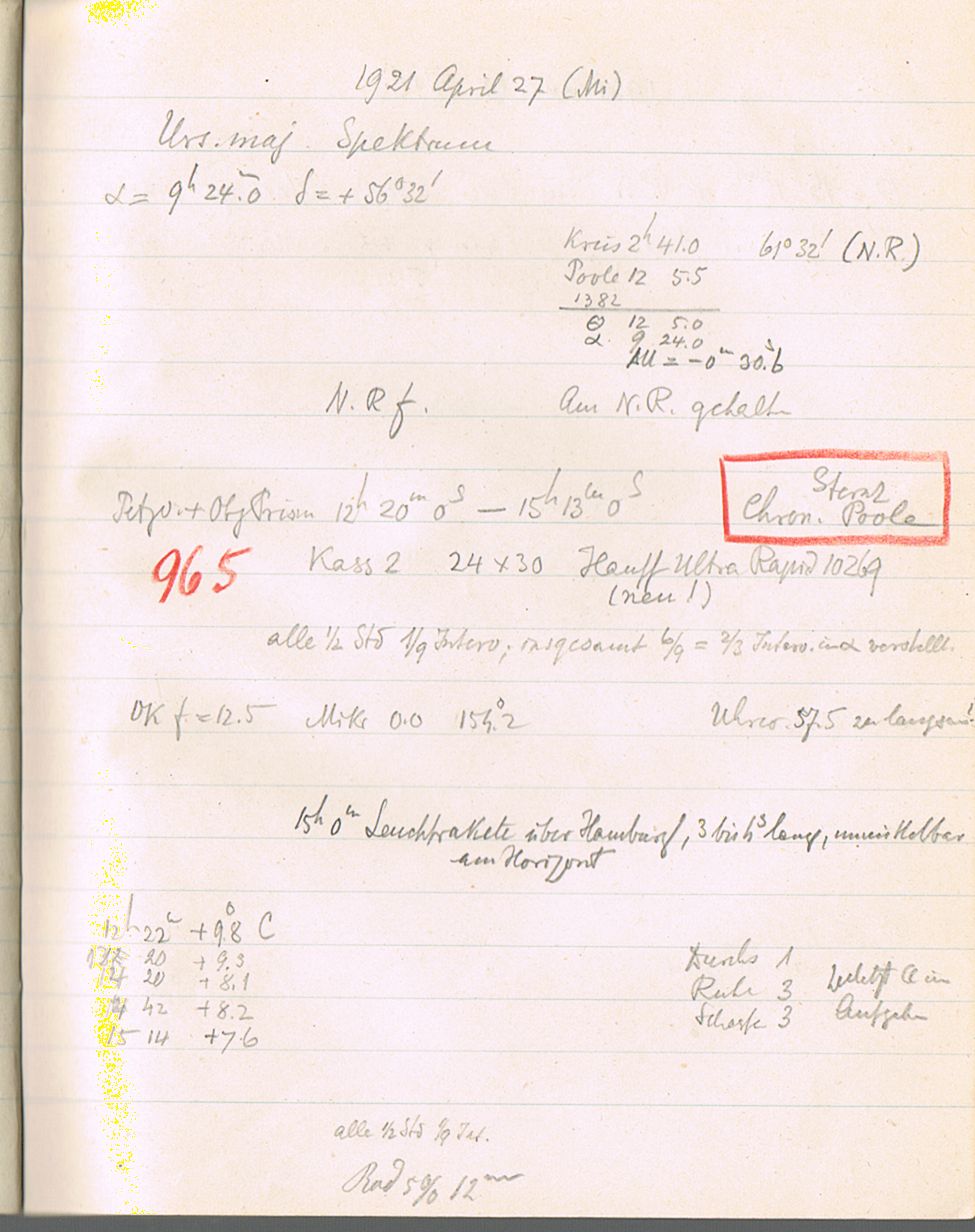 1921 April 27 (Mi)
Urs. maj. Spektrum
α = 9h 24m.0 δ = + 56° 32'
Kreis 2h 41.0 61° 32' (N.R.)
Poole 12 5.5
1382
Θ 12 5.0
α 9 24.0
ΔU = -0m 30s.6
N.R f. Am N.R. gehalten
Petzv. + Obj Prism 12h 20m 0s — 15h 13m 0s
Sternz
Chron. Poole
965 Kass 2 24 x 30 Hauff Ultra Rapid 10269
(neu!)
alle 1/2 Std 1/9 Interv; insgesamt 6/9 = 2/3 Interv. in α verstellt.
OK f = 12.5 Mikr 0.0 154°.2 Uhrw. 57.5 zu langsam!
15h 0m Leuchtrakete über Hamburg, 3 bis lang, unmittelbar
am Horizont
12h 22m + 9°.8 C
20 + 9.3
14 20 + 8.1
14 42 + 8.2
15 14 + 7.6
Durchs 1
Ruhe 3
Schärfe 3
Zuletzt ☾ im
Aufgehn
alle 1/2 Std 1/9 Int.
Rod 5% 12m